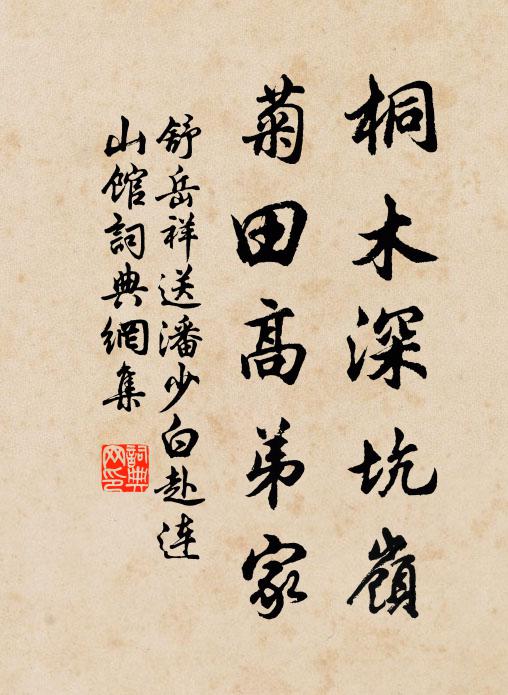 桐木深坑嶺
菊田高弟家
舒岳祥送潘少白赴連
山館詞典網集
詞典
网印